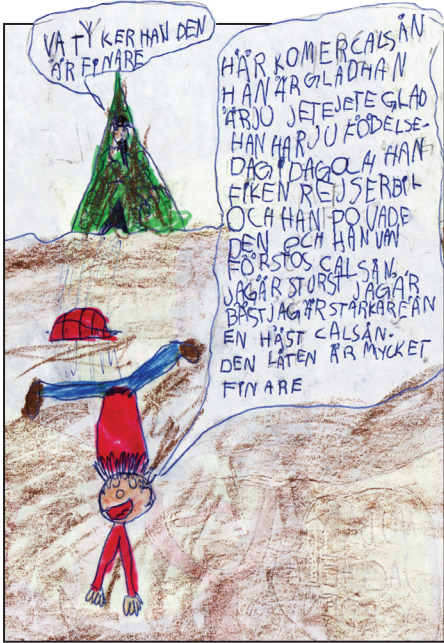 VA TYKER HAN DEN
ÄR FINARE
HÄR KOMER CALSÅN
HAN ÄR GLAD HAN
ÄR JU JETEJETE GLAD
HAN HAR JU FÖDELSE-
DAG I DAG OCH HAN
FIKEN REJSERBIL
OCH HAN PROVADE
DEN OCH HAN VAN
FÖRSTOS CALSÅN,
JAG ÄR STÖRST JAG ÄR
BÄST JAG ÄR STARKARE ÄN
EN HÄST CALSÅN.
DEN LÅTEN ÄR MYCKET
FINARE